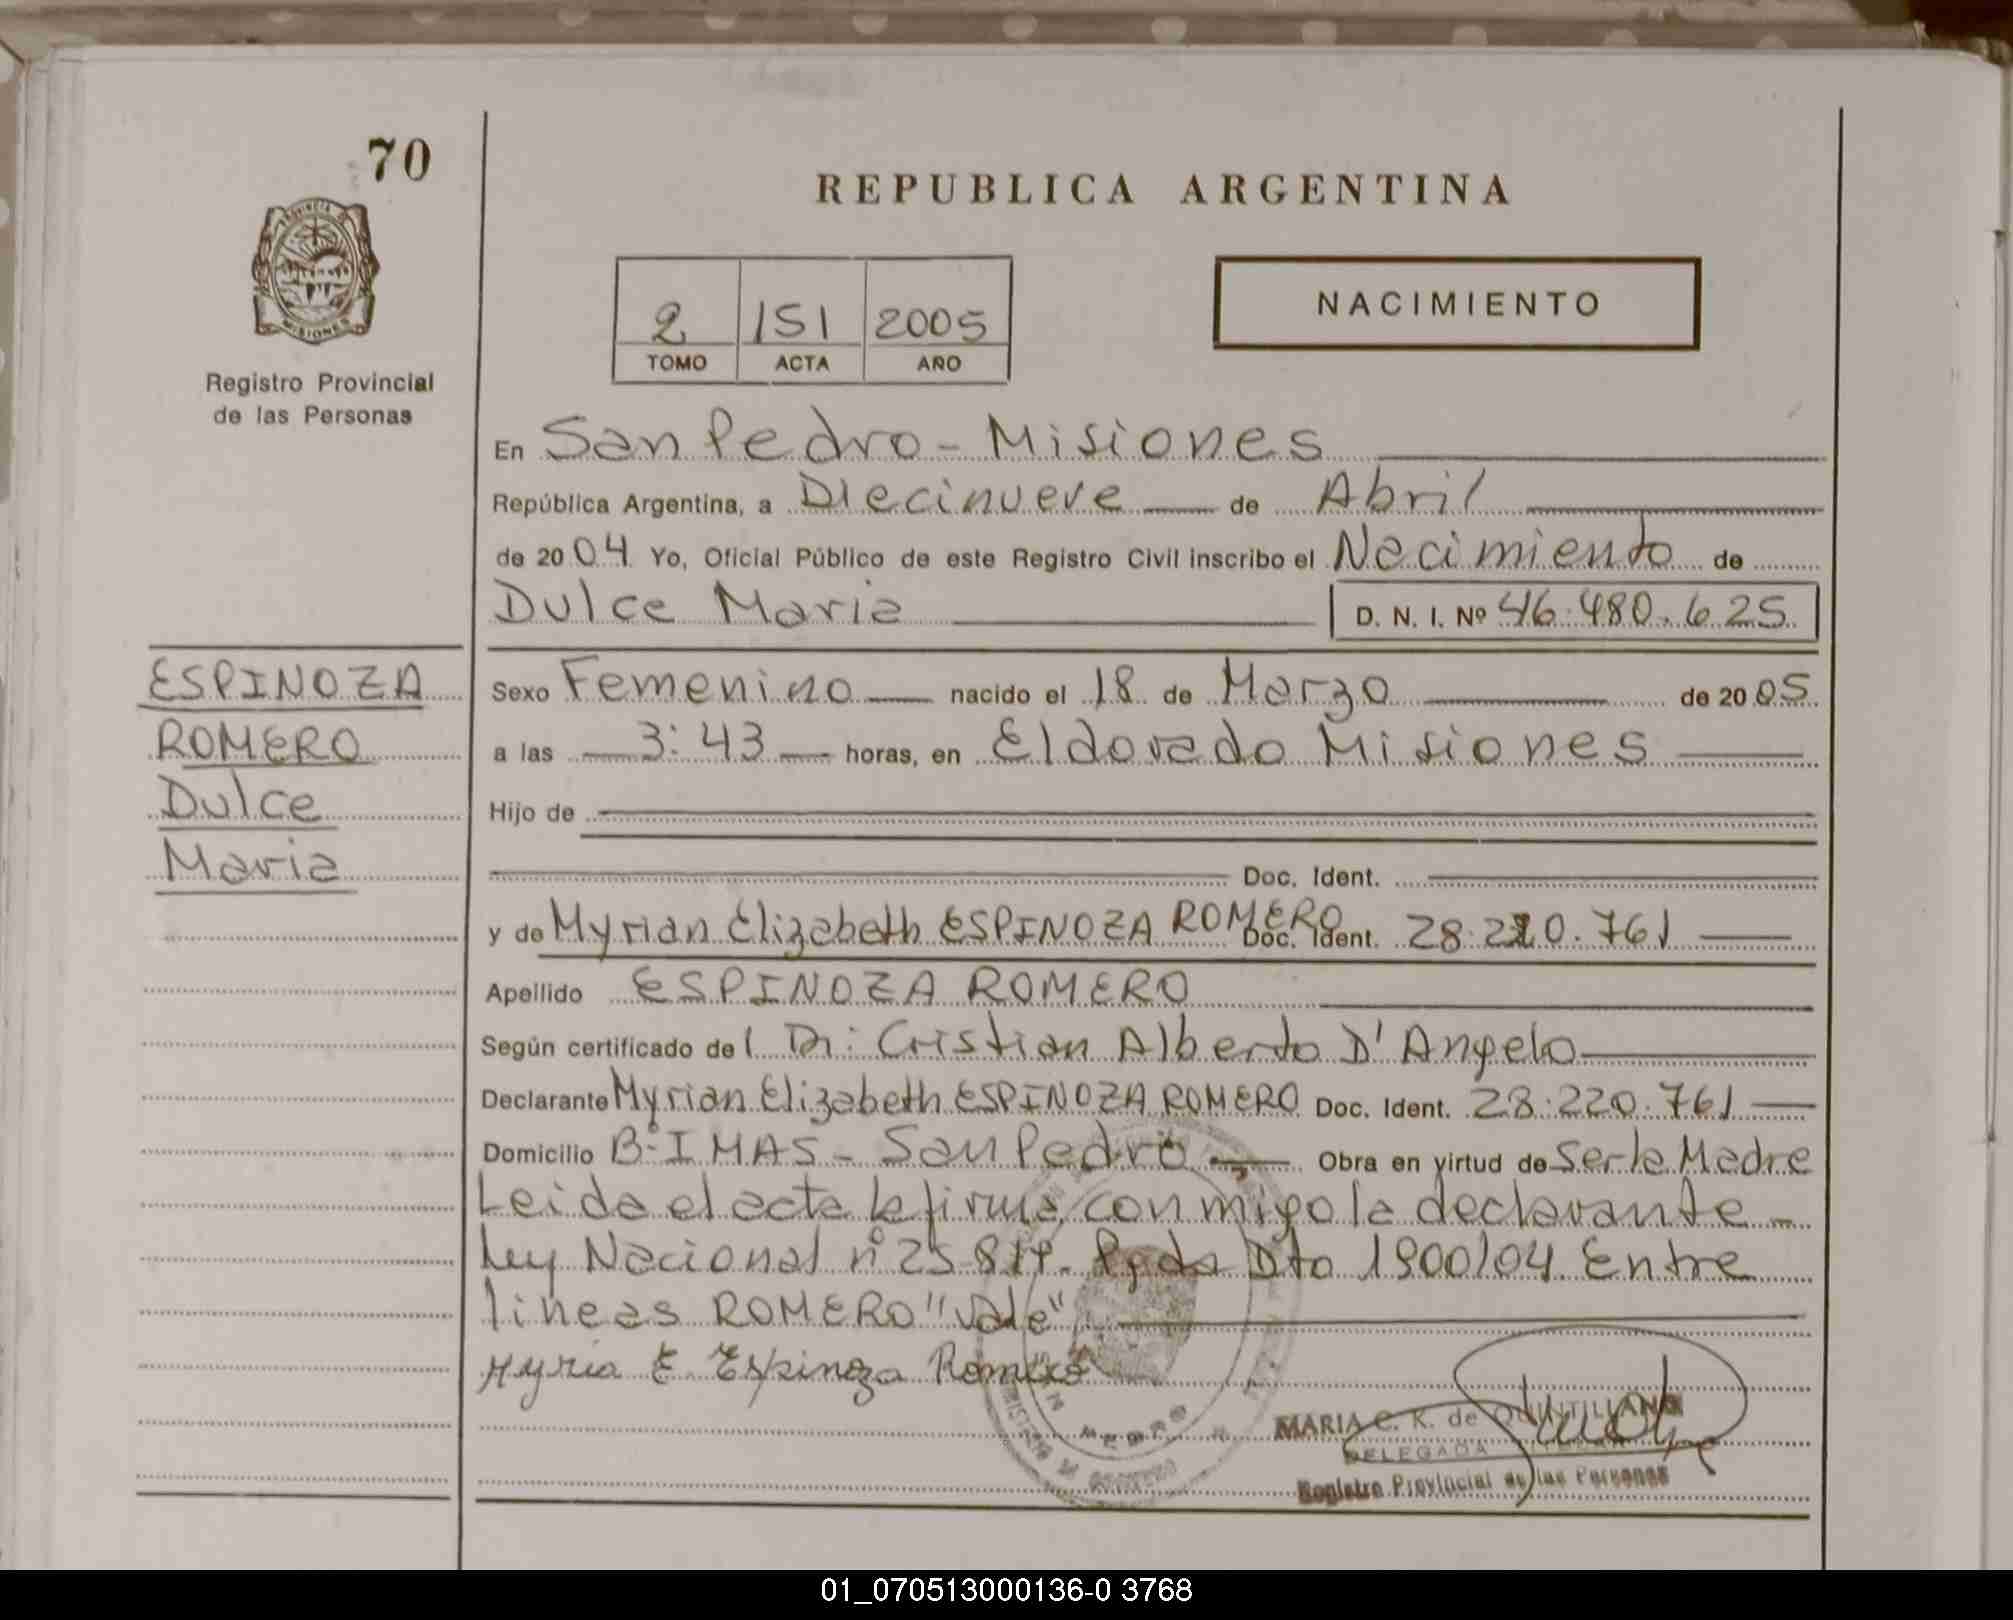 70
REPUBLICA ARGENTINA
PROVINCIA DE
MISIONES
Registro Provincial
de las Personas
NACIMIENTO
2 151 2005
TOMO ACTA AÑO
En San Pedro - Misiones
República Argentina, a Diecinueve de Abril
de 2004 Yo, Oficial Público de este Registro Civil inscribo el Nacimiento de
Dulce Maria D. N. I. Nº 46.480.625
ESPINOZA
ROMERO
Dulce
Maria
Sexo Femenino nacido el 18 de Marzo de 2005
a las 3:43 horas, en Eldorado Misiones
Hijo de
Doc. Ident.
y de Myrian Elizabeth ESPINOZA ROMERO Doc. Ident. 28.220.761
Apellido ESPINOZA ROMERO
Según certificado del Dr: Cristian Alberto D'Angelo
Declarante Myrian Elizabeth ESPINOZA ROMERO Doc. Ident. 28.220.761
Domicilio Bº IMAS - San Pedro Obra en virtud de Ser la Madre
Leida el acta la firma conmigo la declarante -
Ley Nacional nº 25.819. Dto 1900/04. Entre
lineas ROMERO "vale"
Myria E Espinoza Romero
MARIA C. K. de QUINTILLANO
DELEGADA
Registro Provincial de las Personas
01_070513000136-0 3768